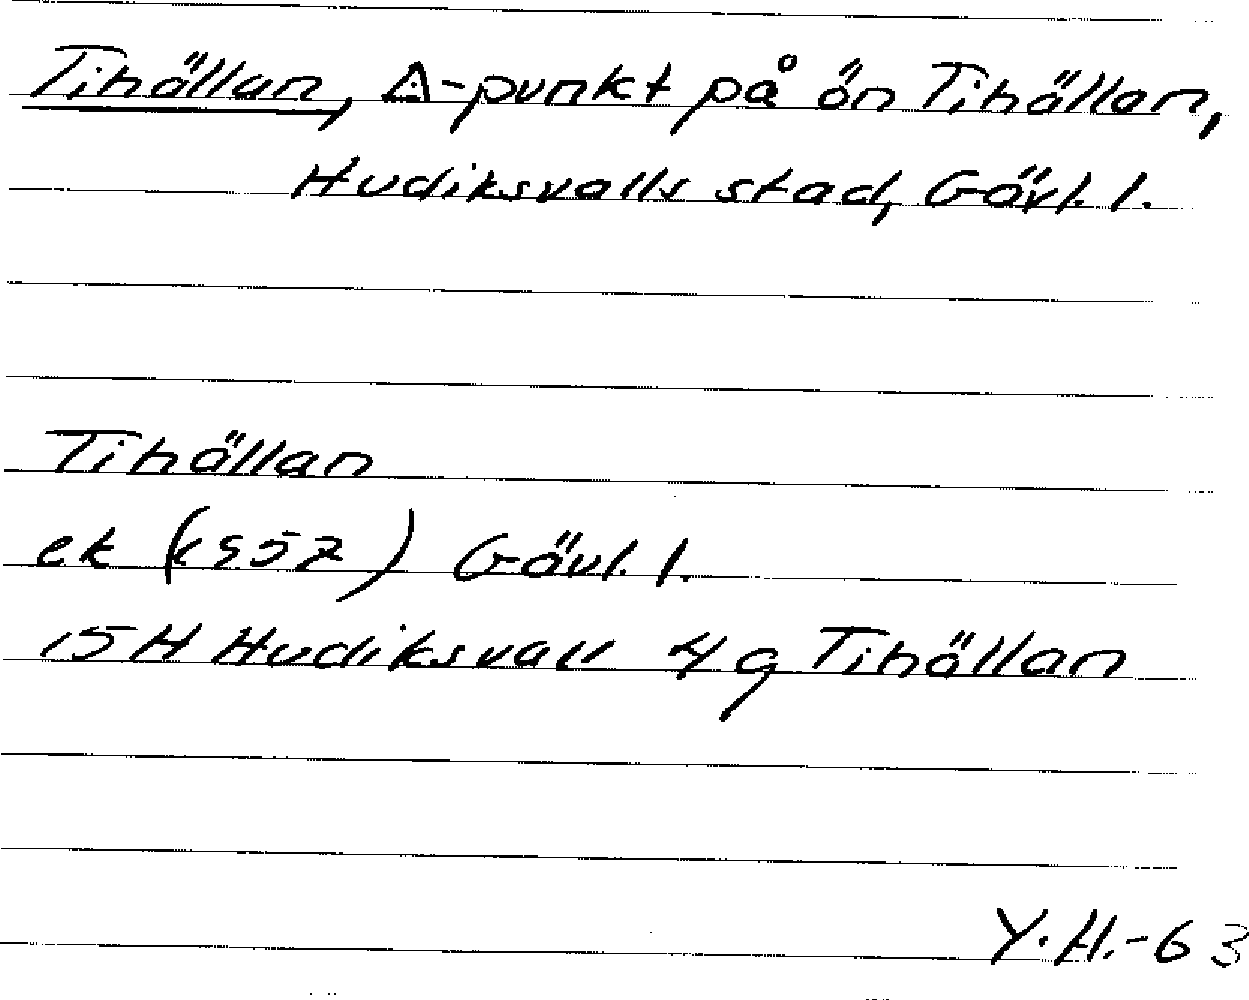 Tihällan, △-punkt på ön Tihällan,
Hudiksvalls stad, Gävl. l.
Tihällan
ek (1957) Gävl. l.
15H Hudiksvall 4g Tihällan
Y.H.-63